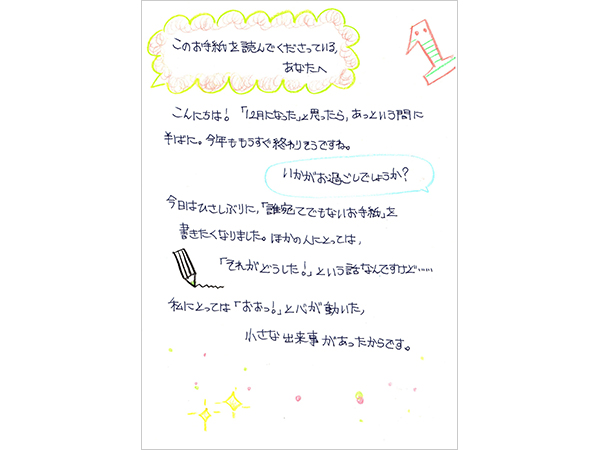 このお手紙を読んでくださっている、
あなたへ
1
こんにちは！「12月になった」と思ったら，あっという間に
半ばに。今年ももうすぐ終わりそうですね。
いかがお過ごしでしょうか？
今日はひさしぶりに，「誰宛てでもないお手紙」を
書きたくなりました。ほかの人にとっては，
「それがどうした！」という話なんですけど……
私にとっては「おおっ！」と心が動いた，
小さな出来事があったからです。